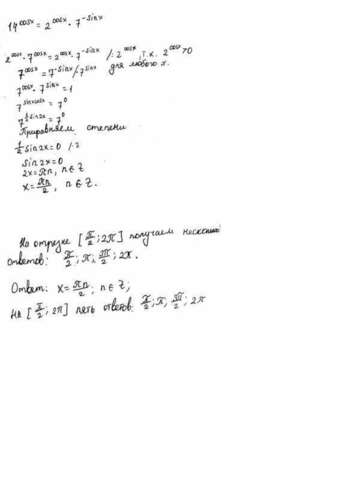 14^cosx = 2^cosx · 7^-sinx
2^cosx · 7^cosx = 2^cosx · 7^-sinx /: 2^cosx, т.к. 2^cosx > 0
7^cosx = 7^-sinx / · 7^sinx для любого x.
7^cosx · 7^sinx = 1
7^sinxcosx = 7^0
7^½sin2x = 7^0
Приравняем степени
½ sin2x = 0 / · 2
sin2x = 0
2x = πn, n ∈ Z
x = πn/2, n ∈ Z.
На отрезке [π/2; 2π] получаем несколько
ответов: π/2; π; 3π/2; 2π.
Ответ: x = πn/2, n ∈ Z;
На [π/2; 2π] пять ответов: π/2; π; 3π/2; 2π